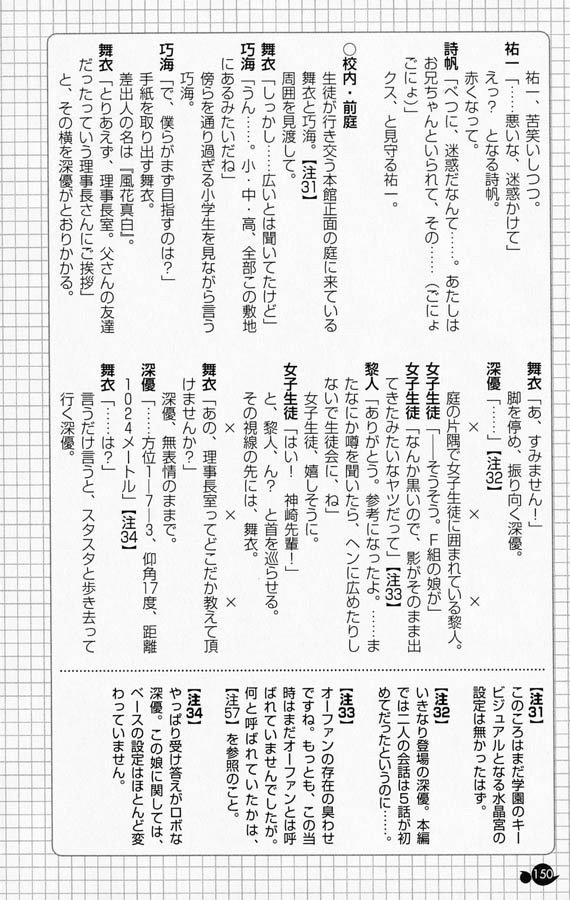 祐一、苦笑いしつつ。
祐一「……悪いな、迷惑かけて」
えっ？　となる詩帆。
赤くなって。
詩帆「べつに、迷惑だなんて……。あたしは
お兄ちゃんといられて、その……（ごにょ
ごにょ）」
クス、と見守る祐一。
○校内・前庭
生徒が行き交う本館正面の庭に来ている
舞衣と巧海。【注31】
周囲を見渡して。
舞衣「しっかし……広いとは聞いてたけど」
巧海「うん……。小・中・高、全部この敷地
にあるみたいだね」
傍らを通り過ぎる小学生を見ながら言う
巧海。
巧海「で、僕らがまず目指すのは？」
手紙を取り出す舞衣。
差出人の名は『風花真白』。
舞衣「とりあえず、理事長室。父さんの友達
だったっていう理事長さんにご挨拶」
と、その横を深優がとおりかかる。
舞衣「あ、すみません！」
脚を停め、振り向く深優。
深優「……」【注32】
×　×　×
庭の片隅で女子生徒に囲まれている黎人。
女子生徒「――そうそう。Ｆ組の娘が」
女子生徒「なんか黒いので、影がそのまま出
てきたみたいなヤツだって」【注33】
黎人「ありがとう。参考になったよ。……ま
たなにか噂を聞いたら、ヘンに広めたりし
ないで生徒会に、ね」
女子生徒、嬉しそうに。
女子生徒「はい！　神崎先輩！」
と、黎人、ん？　と首を巡らせる。
その視線の先には、舞衣。
×　×　×
舞衣「あの、理事長室ってどこだか教えて頂
けませんか？」
深優、無表情のままで。
深優「……方位1―7―3、仰角17度、距離
1024メートル」【注34】
舞衣「……は？」
言うだけ言うと、スタスタと歩き去って
行く深優。
【注31】
このころはまだ学園のキー
ビジュアルとなる水晶宮の
設定は無かったはず。
【注32】
いきなり登場の深優。本編
では二人の会話は５話が初
めてだったというのに……。
【注33】
オーファンの存在の臭わせ
ですね。もっとも、この当
時はまだオーファンとは呼
ばれていませんでしたが。
何と呼ばれていたかは、
【注57】を参照のこと。
【注34】
やっぱり受け答えがロボな
深優。この娘に関しては、
ベースの設定はほとんど変
わっていません。
150